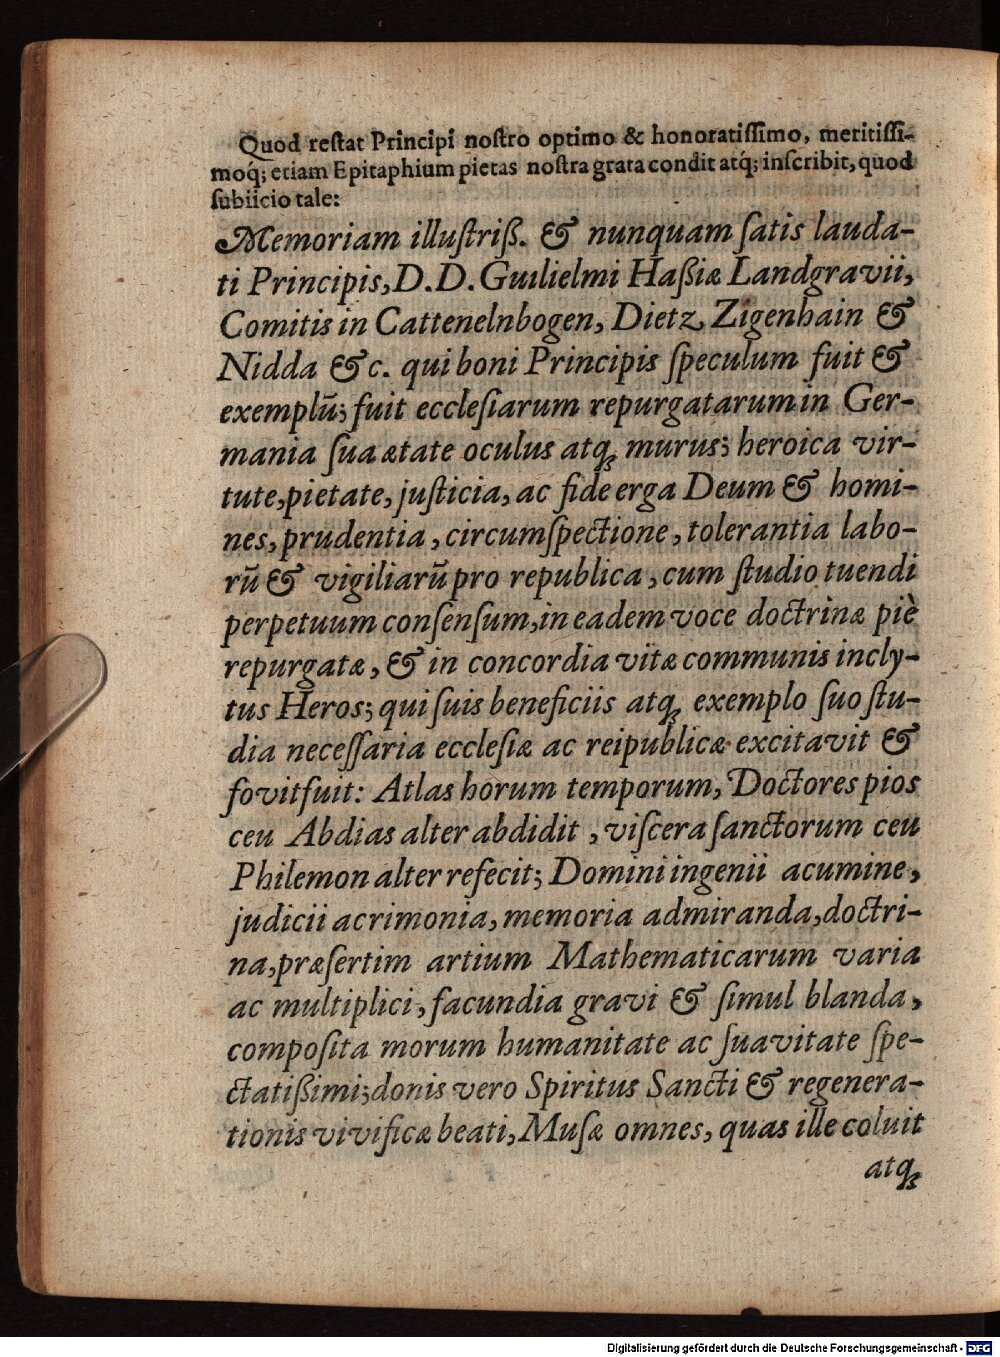 Quod reſtat Principi noſtro optimo & honoratiſſimo, meritiſſi-
moq́; etiam Epitaphium pietas noſtra grata condit atq́; inſcribit, quod
ſubiicio tale:
Memoriam illuſtriß. & nunquam ſatis lauda-
ti Principis, D. D. Guilielmi Haßiæ Landgravii,
Comitis in Cattenelnbogen, Dietz, Zigenhain &
Nidda &c. qui boni Principis ſpeculum fuit &
exemplũ; fuit eccleſiarum repurgatarum in Ger-
mania ſua ætate oculus atq; murus; heroica vir-
tute, pietate, juſticia, ac fide erga Deum & homi-
nes, prudentia, circumſpectione, tolerantia labo-
rũ & vigiliarũ pro republica, cum ſtudio tuendi
perpetuum conſenſum, in eadem voce doctrinæ piè
repurgatæ, & in concordia vitæ communis incly-
tus Heros; qui ſuis beneficiis atq; exemplo ſuo ſtu-
dia neceſſaria eccleſiæ ac reipublicæ excitavit &
fovit fuit: Atlas horum temporum, Doctores pios
ceu Abdias alter abdidit, viſcera ſanctorum ceu
Philemon alter refecit; Domini ingenii acumine,
judicii acrimonia, memoria admiranda, doctri-
na, præſertim artium Mathematicarum varia
ac multiplici, facundia gravi & ſimul blanda,
compoſita morum humanitate ac ſuavitate ſpe-
ctatißimi; donis vero Spiritus Sancti & regenera-
tionis vivificæ beati, Muſæ omnes, quas ille coluit
atq;
Digitalisierung gefördert durch die Deutsche Forschungsgemeinschaft - DFG